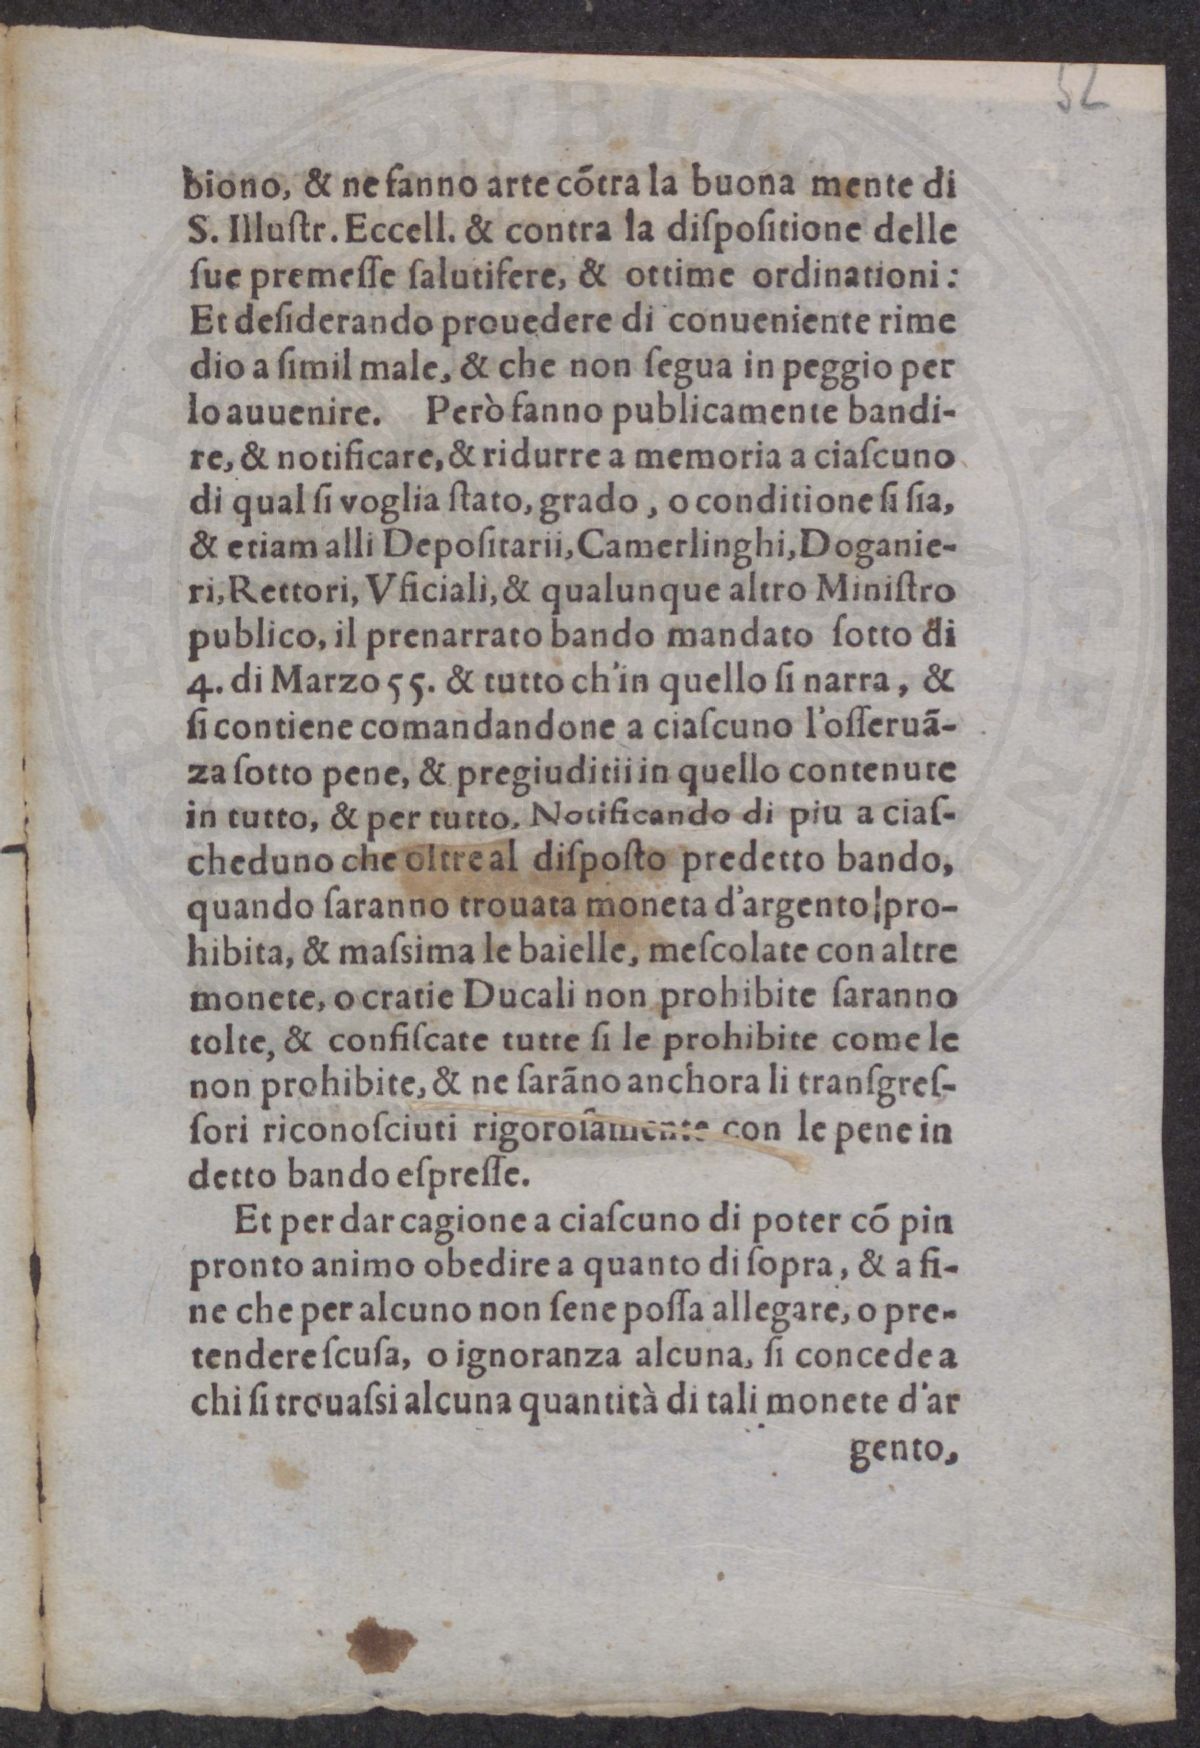 52
biono, & ne fanno arte cõtra la buona mente di
S. Illuſtr. Eccell. & contra la diſpoſitione delle
ſue premeſſe ſalutifere, & ottime ordinationi:
Et deſiderando prouedere di conueniente rime
dio a ſimil male, & che non ſegua in peggio per
lo auuenire. Però fanno publicamente bandi-
re, & notificare, & ridurre a memoria a ciaſcuno
di qual ſi voglia ſtato, grado, o conditione ſi ſia,
& etiam alli Depoſitarii, Camerlinghi, Doganie-
ri, Rettori, Vficiali, & qualunque altro Miniſtro
publico, il prenarrato bando mandato ſotto di
4. di Marzo 55. & tutto ch'in quello ſi narra, &
ſi contiene comandandone a ciaſcuno l'oſſeruã-
za ſotto pene, & pregiuditii in quello contenute
in tutto, & per tutto. Notificando di piu a ciaſ-
cheduno che oltre al diſpoſto predetto bando,
quando ſaranno trouata moneta d'argento|pro-
hibita, & maſsima le baielle, meſcolate con altre
monete, o cratie Ducali non prohibite ſaranno
tolte, & confiſcate tutte ſi le prohibite come le
non prohibite, & ne ſarãno anchora li tranſgreſ-
ſori riconoſciuti rigoroſamente con le pene in
detto bando eſpreſſe.
Et per dar cagione a ciaſcuno di poter cõ pin
pronto animo obedire a quanto di ſopra, & a fi-
ne che per alcuno non ſene poſſa allegare, o pre-
tendere ſcuſa, o ignoranza alcuna, ſi concede a
chi ſi trouaſsi alcuna quantità di tali monete d'ar
gento,